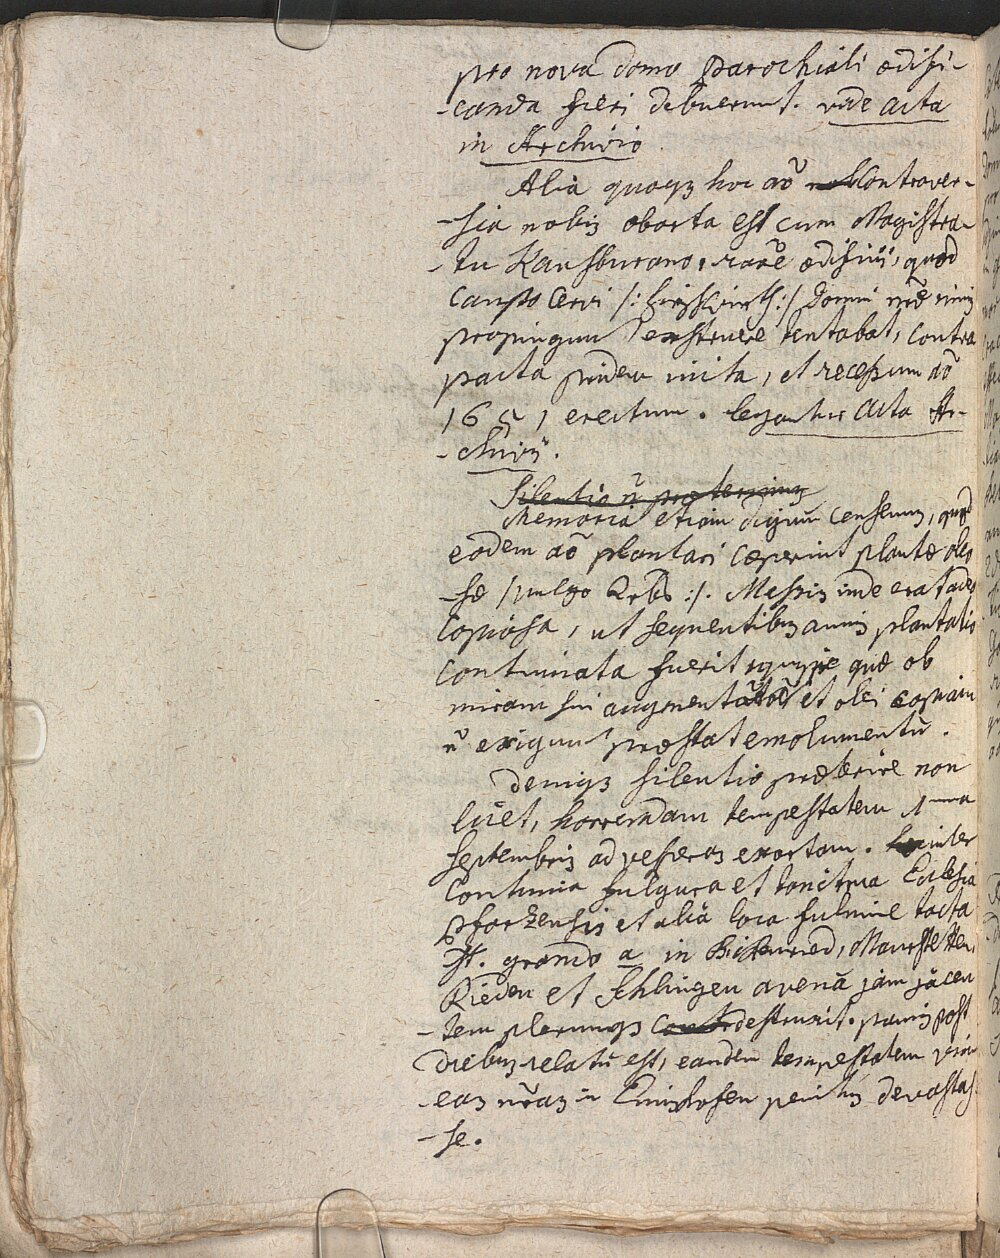 pro nova domo parochiali ædifi-
canda fieri debuerunt. vide acta
in Archivio.
Alia quoqȝ hoc aõ controver-
-sia nobis oborta est cum Magistra-
-tu Kaufburano, rãoe ædificii, quod
caupo Cervi /: hirschwirth :/ Domui nr̃æ nimis
propinquum exstruere tentabat, contra
pacta pridem inita, et recessum aõ
1651 erectum. legantur acta Ar-
-chivii.
Silentio ñ præterimus
Memoria etiam dignum censemus, quod
eodem aõ plantari cæperint plantæ oleo
-sæ /vulgo Reebs :/. Messis inde erat adeo
copiosa, ut sequentibus annis plantatio
continuata fuerit, quippe quæ ob
miram sui augmentãoẽ et olei copiam
ñ exiguum præstat emolumentũ.
Deniqȝ silentio præterire non
licet, horrendam tempestatem 1ma
septembris ad vesperas exortam. inter
continua fulgura et tonitrua Ecclesia
Pforzensis et alia loca fulmine tacta
st. grando a in Bickenried, Maurstetten,
Rieden et Schlingen avenã jam jacen
-tem plerumqȝ destruxit. paucis post
diebus relatũ est, eandem tempestatem vin
-eas nr̃as in Emishofen penitus devastas
-se.